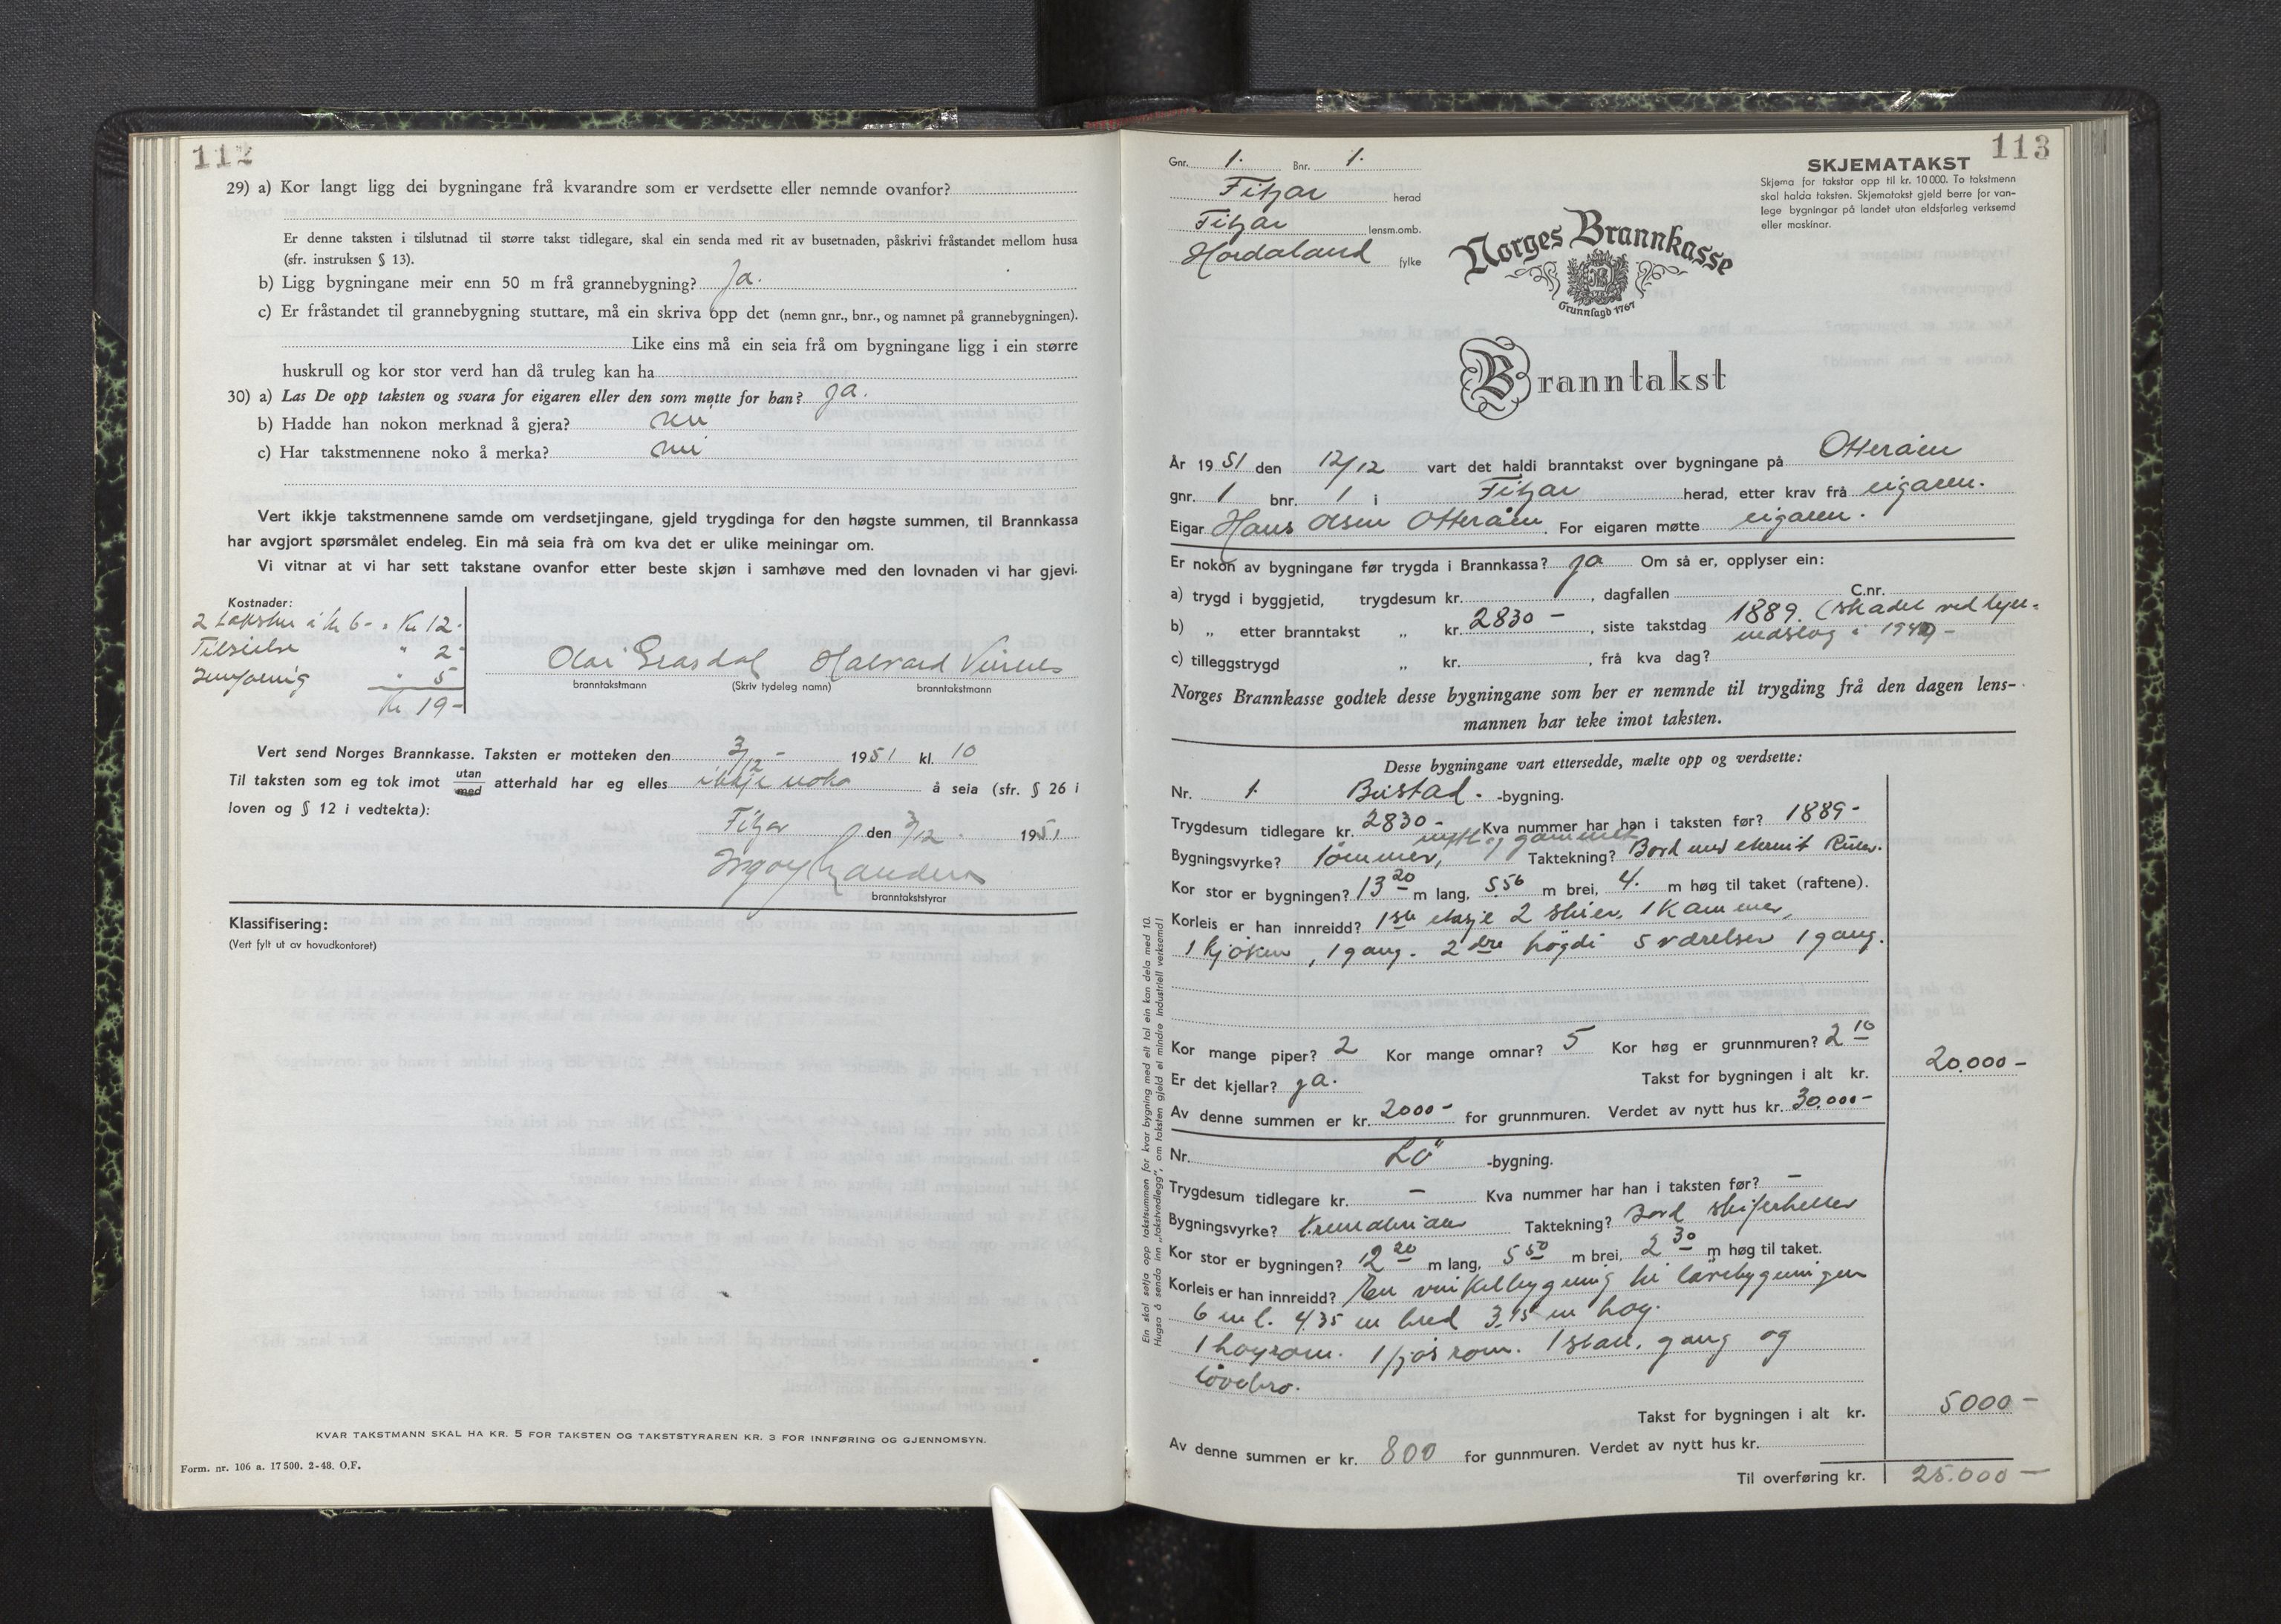 112
29) a) Kor langt ligg dei bygningane frå kvarandre som er verdsette eller nemnde ovanfor?
Er denne taksten i tilslutnad til større takst tidlegare, skal ein senda med rit av busetnaden, påskrivi fråstandet mellom husa
(sfr. instruksen § 13).
b) Ligg bygningane meir enn 50 m frå grannebygning? Ja.
c) Er fråstandet til grannebygning stuttare, må ein skriva opp det (nemn gnr., bnr., og namnet på grannebygningen).
Like eins må ein seia frå om bygningane ligg i ein større
huskrull og kor stor verd han då truleg kan ha
30) a) Las De opp taksten og svara for eigaren eller den som møtte for han? ja.
b) Hadde han nokon merknad å gjera? nei
c) Har takstmennene noko å merka? nei
Vert ikkje takstmennene samde om verdsetjingane, gjeld trygdinga for den høgste summen, til Brannkassa
har avgjort spørsmålet endeleg. Ein må seia frå om kva det er ulike meiningar om.
Vi vitnar at vi har sett takstane ovanfor etter beste skjøn i samhøve med den lovnaden vi har gjevi.
Kostnader:
2 takster à kr 6- = Kr 12.
" 2-
" 5
Kr 19-
Olai Halvard
branntakstmann (Skriv tydeleg namn) branntakstmann
Vert send Norges Brannkasse. Taksten er motteken den 3/12 - 1951 kl. 10
Til taksten som eg tok imot utan/med atterhald har eg elles ikkje noko å seia (sfr. § 26 i
loven og § 12 i vedtekta):
Fitjar den 3/12 . 1951
branntakststyrar
Klassifisering:
(Vert fylt ut av hovudkontoret)
KVAR TAKSTMANN SKAL HA KR. 5 FOR TAKSTEN OG TAKSTSTYRAREN KR. 3 FOR INNFØRING OG GJENNOMSYN.
Form. nr. 106 a. 17 500. 2-48. O.F.
113
Gnr. 1. Bnr. 1.
Fitjar herad
Fitjar lensm.omb.
Hordaland fylke
SKJEMATAKST
Skjema for takstar opp til kr. 10 000. To takstmenn
skal halda taksten. Skjematakst gjeld berre for van-
lege bygningar på landet utan eldsfarleg verksemd
eller maskinar.
Norges Brannkasse
Grunnlagd 1767
Branntakst
År 1951 den 12/12 vart det haldi branntakst over bygningane på Otteråen
gnr. 1 bnr. 1 i Fitjar herad, etter krav frå eigaren.
Eigar Hans Olsen Otteråen. For eigaren møtte eigaren.
Er nokon av bygningane før trygda i Brannkassa? ja Om så er, opplyser ein:
a) trygd i byggjetid, trygdesum kr. , dagfallen C.nr.
b) „ etter branntakst „ kr. 2830 - , siste takstdag 1889. (skadet ved lyn-
nedslag i
c) tilleggstrygd „ kr. , frå kva dag?
Norges Brannkasse godtek desse bygningane som her er nemnde til trygding frå den dagen lens-
mannen har teke imot taksten.
Desse bygningane vart ettersedde, mælte opp og verdsette:
Nr. 1 Bustad. -bygning.
Trygdesum tidlegare kr. 2830 - Kva nummer har han i taksten før? 1889-
nytt og gammelt
Bygningsvyrke? tömmer, Taktekning? Bord med eternit
Kor stor er bygningen? 13 20 m lang, 5 56 m brei, 4. m høg til taket (raftene).
Korleis er han innreidd? 1ste etasje 2 stuer, 1 Kammer,
1 kjöken, 1 gang. 2dre högdi 5 værelser 1 gang.
Kor mange piper? 2 Kor mange omnar? 5 Kor høg er grunnmuren? 2 10
Er det kjellar? ja. Takst for bygningen i alt kr. 20.000-
Av denne summen er kr. 2000- for grunnmuren. Verdet av nytt hus kr. 30.000-
Nr. Lö -bygning.
Trygdesum tidlegare kr. - Kva nummer har han i taksten før? -
Bygningsvyrke? Taktekning? Bord skiferheller
Kor stor er bygningen? 12 20 m lang, 5 50 m brei, 2 30 m høg til taket.
Korleis er han innreidd? En vinkelbygning til lövebygningen
6 m l. 4.35 m bred 3.45 m høg.
1 høyrom. 1 fjös rom. 1 stall, gang og
lövebro.
Takst for bygningen i alt kr. 5000-
Av denne summen er kr. 800 for gunnmuren. Verdet av nytt hus kr.
Til overføring kr. 25.000-
Ein skal setja opp takstsummen for kvar bygning med eit tal ein kan dela med 10.
Hugsa å senda inn „takstvedlegg", om taksten gjeld ei mindre industriell verksemd!